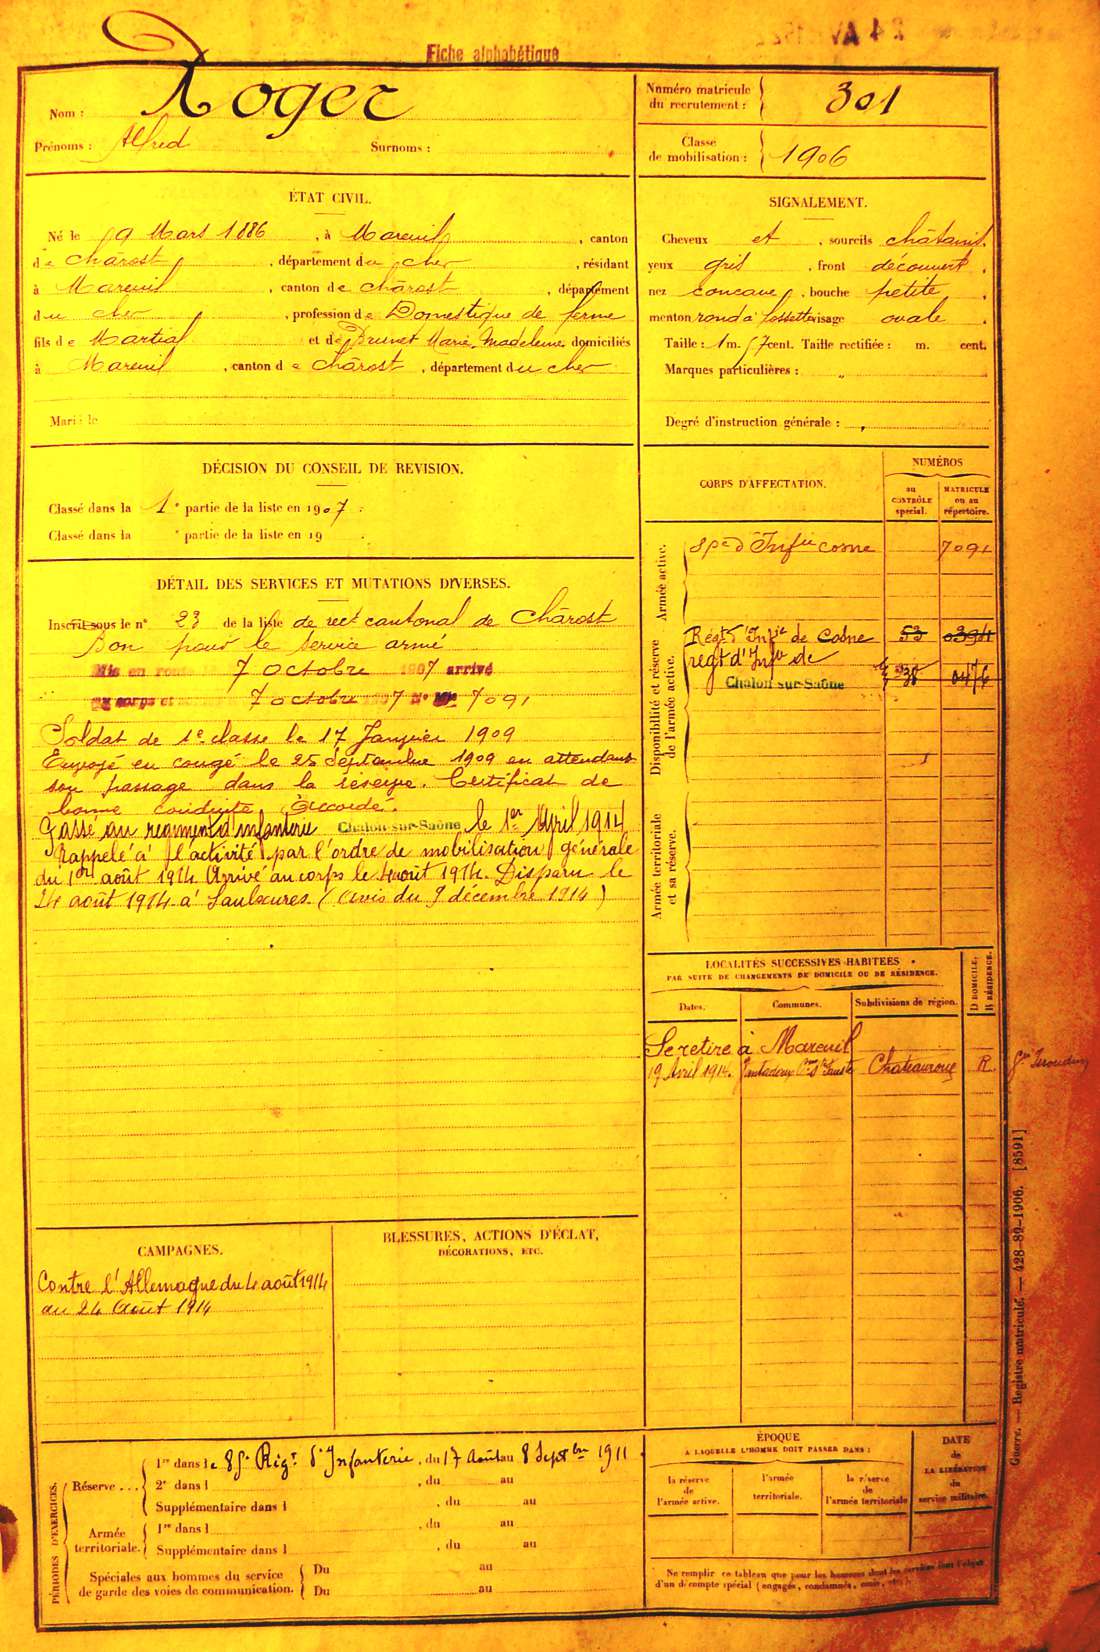 Fiche alphabétique
Nom : Roger
Prénoms : Alfred Surnoms :
Numéro matricule du recrutement : 301
Classe de mobilisation : 1906
ÉTAT CIVIL.
Né le 9 Mars 1886, à Mareuil, canton
de Chârost, département du cher, résidant
à Mareuil, canton de chârost, département
du cher, profession de Domestique de ferme
fils de Martial et de Brunet Marie Madeleine domiciliés
à Mareuil, canton de Chârost, département du cher
Marié le
SIGNALEMENT.
Cheveux et, sourcils châtains.
yeux gris, front découvert.
nez concave, bouche petite.
menton rond à fossette visage ovale.
Taille : 1 m. 57 cent. Taille rectifiée : m. cent.
Marques particulières : „
Degré d'instruction générale : ,
DÉCISION DU CONSEIL DE REVISION.
Classé dans la 1e partie de la liste en 1907.
Classé dans la e partie de la liste en 19
DÉTAIL DES SERVICES ET MUTATIONS DIVERSES.
Inscrit sous le n° 23 de la liste de rect cantonal de Chârost
Bon pour le service armé
Mis en route le 7 octobre 1907 arrivé
au corps et 7 octobre 1907 N° Mle 7091
Soldat de 1e classe le 17 Janvier 1909
Envoyé en congé le 25 Septembre 1909 en attendant
son passage dans la réserve. Certificat de
bonne conduite Accordé.
Passé au régiment d'infanterie Chalon-sur-Saône le 1er Avril 1914
Rappelé à l'activité par l'ordre de mobilisation générale
du 1er août 1914 Arrivé au corps le 4 août 1914. Disparu le
24 août 1914 à Saulxures. (Avis du 9 décembre 1914)
CORPS D'AFFECTATION.
NUMÉROS
au CONTRÔLE spécial.
MATRICULE ou au répertoire.
Armée active.
d'Infie cosne 7091
Disponibilité et réserve de l'armée active.
Régt d'Infie de Cosne 53
regt d'Infie de
Chalon-sur-Saône
Armée territoriale et sa réserve.
LOCALITÉS SUCCESSIVES HABITÉES
PAR SUITE DE CHANGEMENTS DE DOMICILE OU DE RÉSIDENCE.
Dates. Communes. Subdivisions de région. D DOMICILE. R RÉSIDENCE.
Se retire à Mareuil
19 Avril 1914. Chateauroux R.
CAMPAGNES.
Contre l'Allemagne du 4 août 1914
au 24 Août 1914
BLESSURES, ACTIONS D'ÉCLAT,
DÉCORATIONS, ETC.
PÉRIODES D'EXERCICES.
Réserve ... 1re dans le 85e Régt d'Infanterie, du 17 Août au 8 Septbre 1911
2e dans l , du au
Supplémentaire dans l , du au
Armée territoriale. 1re dans l , du au
Supplémentaire dans l , du au
Spéciales aux hommes du service de garde des voies de communication. Du au
Du au
ÉPOQUE
A LAQUELLE L'HOMME DOIT PASSER DANS :
la réserve de l'armée active.
l'armée territoriale.
la réserve de l'armée territoriale
DATE de LA LIBÉRATION du service militaire.
Ne remplir ce tableau que pour les hommes dont les services font l'objet
d'un décompte spécial (engagés, condamnés, omis, etc.)
Guerre. — Registre matricule. — 428-89-1906. [8591]